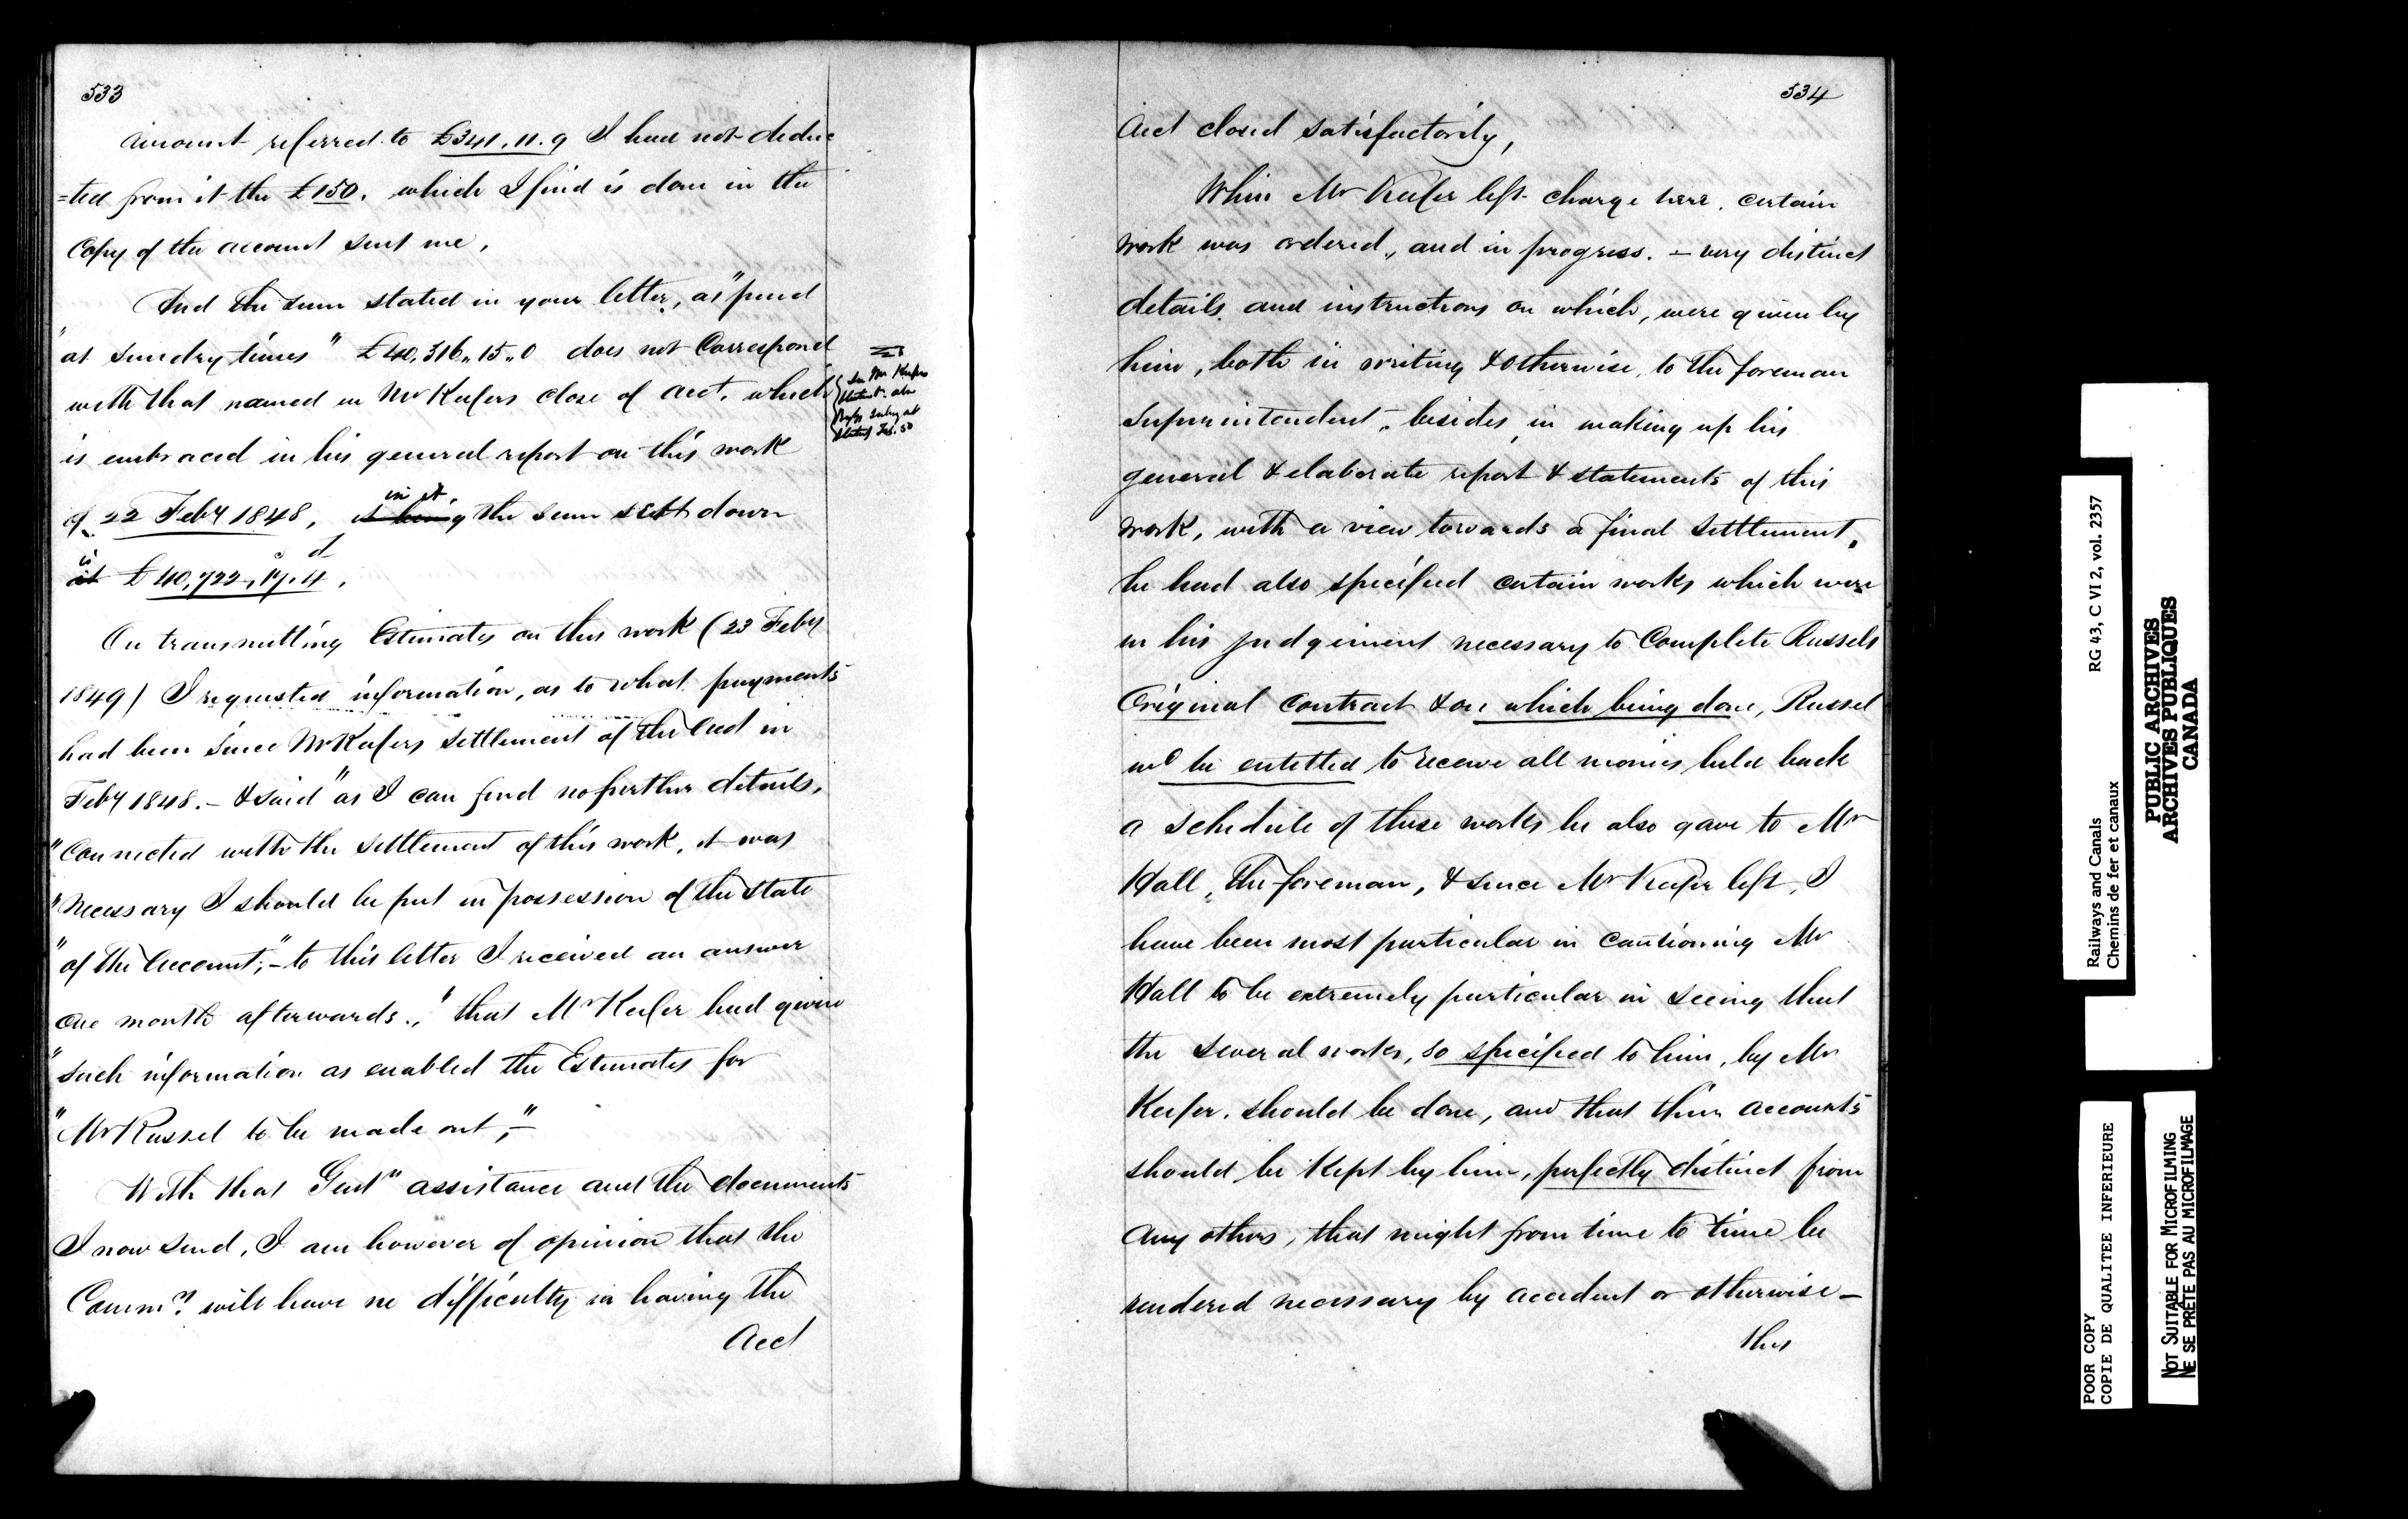 533
amount referred to £341.11.9 I have not deduc
=ted from it the £150. which I find is done in the
Copy of the account sent me,
And the sum stated in your letter, as "paid
"at sundry times" £40,316,,15,,0 does not Correspond
with that named in Mr Keefers close of acct, which
is embraced in his general report on this work
of 22 Feby 1848, in it the sum sett down
is £40,722,,17.4.
On transmitting Estimates on this work (23 Feby
1849) I requested information, as to what payments
had been since Mr Keefers settlement of the acct in
Feby 1848. - & said "as I can find no further details,
"Connected with the settlement of this work, it was
"necessary I should be put in possession of the state
"of the account;" - to this letter I received an answer
one month afterwards., "that Mr Keefer had given
"such information as enabled the Estimates for
"Mr Russel to be made out," -
With that Gentn assistance and the documents
I now send, I am however of opinion that the
Commrs will have no difficulty in having the
Acct
See Mr Keefers
Statmt. also
at
Feb. 50
534
Acct closed satisfactorily,
When Mr Keefer left charge here, certain
work was ordered,, and in progress. - very distinct
details and instructions on which, were given by
him, both in writing & otherwise, to the foreman
Superintendent, besides, in making up his
general & elaborate report & statements of this
work, with a view towards a final settlement,
he had also specified certain works which were
in his judgement necessary to Complete Russels
Original contract & on which being done, Russel
wd be entitled to receive all monies held back
a schedule of these works he also gave to Mr
Hall, the foreman, & since Mr Keefer left, I
have been most particular in cautioning Mr
Hall to be extremely particular in seeing that
the several works, so specified to him, by Mr
Keefer, should be done, and that their accounts
should be kept by him, perfectly distinct from
any others, that might from time to time be
rendered necessary by accident or otherwise -
this
Railways and Canals
Chemins de fer et canaux
RG 43, C VI 2, vol. 2357
PUBLIC ARCHIVES
ARCHIVES PUBLIQUES
CANADA
POOR COPY
COPIE DE QUALITEE INFERIEURE
NOT SUITABLE FOR MICROFILMING
NE SE PRÊTE PAS AU MICROFILMAGE